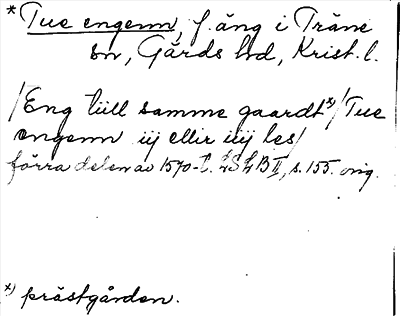 * Tue engenn, f. äng i Träne
sn, Gärds hd, Krist. l.
/Eng tiill samme gaardt*)/Tue
engenn iij ellir iiij les/
förra delen av 1570-t. LSLB II, s. 155. orig.
*) prästgården.